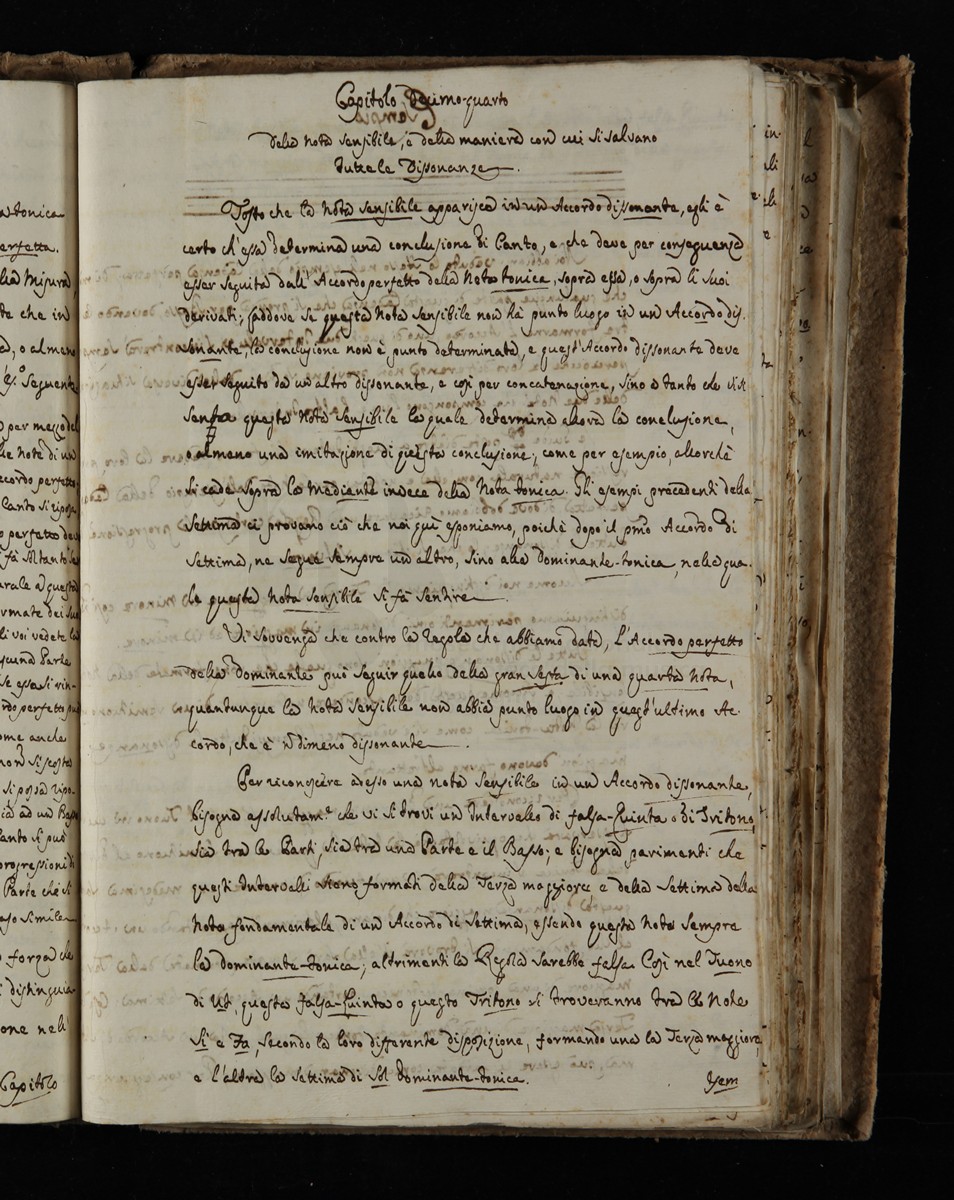 Capitolo Decimo-quarto
della nota sensibile, e della maniera con cui si salvano
tutte le Dissonanze.
Tosto che la nota sensibile apparisca in un Accordo dissonante, egli è
certo ch'essa determina una conclusione di Canto, e che deve per conseguenza
esser seguita dall'Accordo perfetto della Nota tonica, sopra essa, o sopra li suoi
derivati; laddove se questa nota sensibile non ha punto luogo in un Accordo dis-
sonante, la conclusione non è punto determinata, e quest'Accordo dissonante deve
esser seguito da un altro dissonante, e così per concatenazione, sino a tanto che si
senta questa nota sensibile la quale determina allora la conclusione,
o almeno una imitazione di questa conclusione, come per esempio, allorchè
si cade sopra la mediante invece della nota tonica. Gli esempi precedenti della
settima ci provano ciò che noi quì esponiamo, poichè dopo il pmo Accordo di
settima, ne segue sempre un altro, sino alla dominante-tonica, nella qua-
le questa nota sensibile si fà sentire.
Vi sovvenga che contro la regola che abbiamo data, l'Accordo perfetto
della dominante può seguir quello della gran sesta di una quarta nota,
quantunque la nota sensibile non abbia punto luogo in quest'ultimo Ac-
cordo, che è nondimeno dissonante.
Per riconoscere adesso una nota sensibile in un Accordo dissonante,
bisogna assolutamte che vi si trovi un Intervallo di falsa-Quinta o di Tritono,
sia tra le Parti, sia tra una Parte e il Basso; e bisogna parimenti che
questi Intervalli siano formati della Terza maggiore, e della settima della
nota fondamentale di un Accordo di settima, essendo questa nota sempre
la dominante-tonica; altrimenti la Regola sarebbe falsa. Così nel Tuono
di Ut, questa falsa-Quinta o questo Tritono si troveranno tra le Note
Si e Fa, secondo la loro differente disposizione, formando una la Terza maggiore,
e l'altra la settima di Sol dominante-tonica.
a tonica
perfetta.
lla Misura
te che in
a, o almeno
Seguente
per mezzo del
lle note di un
ccordo perfetto
Canto si riposa
o perfetto de
fà soltanto
urale a questa
rmate dei suo
li voi vedete la
scuna Parte
se essa si rin-
rdo perfetto
ome anche
non si scosta
si possa ripo-
ia ad un Basso
anto si può
progressioni di
Parte che si
aso simile
forza che
distinguia
one nell'
Capitolo